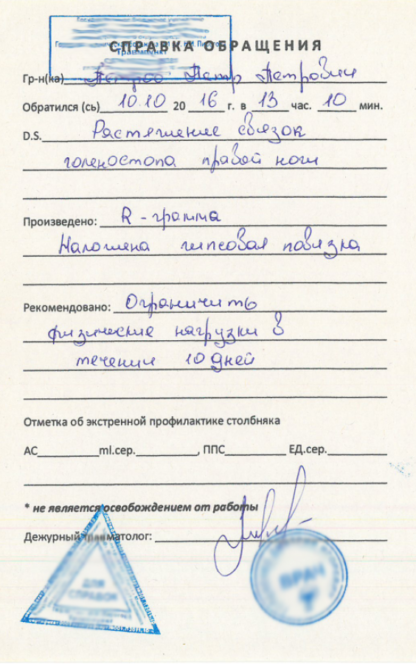 СПРАВКА ОБРАЩЕНИЯ
Гр-н(ка) Петров Петр Петрович
Обратился (сь) 10 10 20 16 г. в 13 час. 10 мин.
D.S. Растяжение связок
голеностопа правой ноги
Произведено: R - грамма
Наложена гипсовая повязка
Рекомендовано: Ограничить
физические нагрузки в
течении 10 дней
Отметка об экстренной профилактике столбняка
АС ml.сер. , ППС ЕД.сер.
* не является освобождением от работы
Дежурный травматолог:
ДЛЯ
СПРАВОК
ВРАЧ